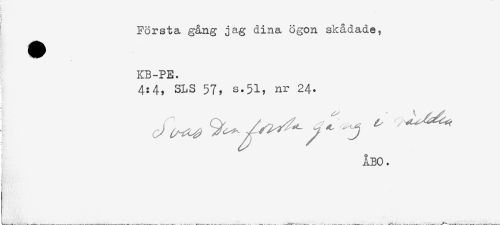 Första gång jag dina ögon skådade,
KB-PE.
4:4, SLS 57, s.51, nr 24.
Den första gång i
ÅBO.